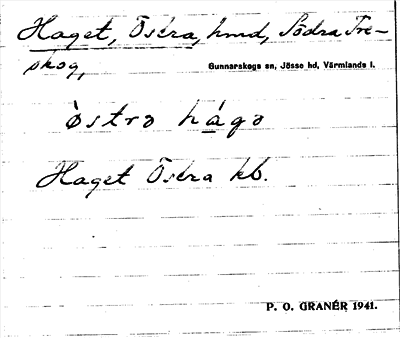 Haget, Östra, hmd, Södra Tre-
skog,
Gunnarskogs sn, Jösse hd, Värmlands l.
òstrə hágə
Haget Östra kb.
P. O. GRANÉR 1941.